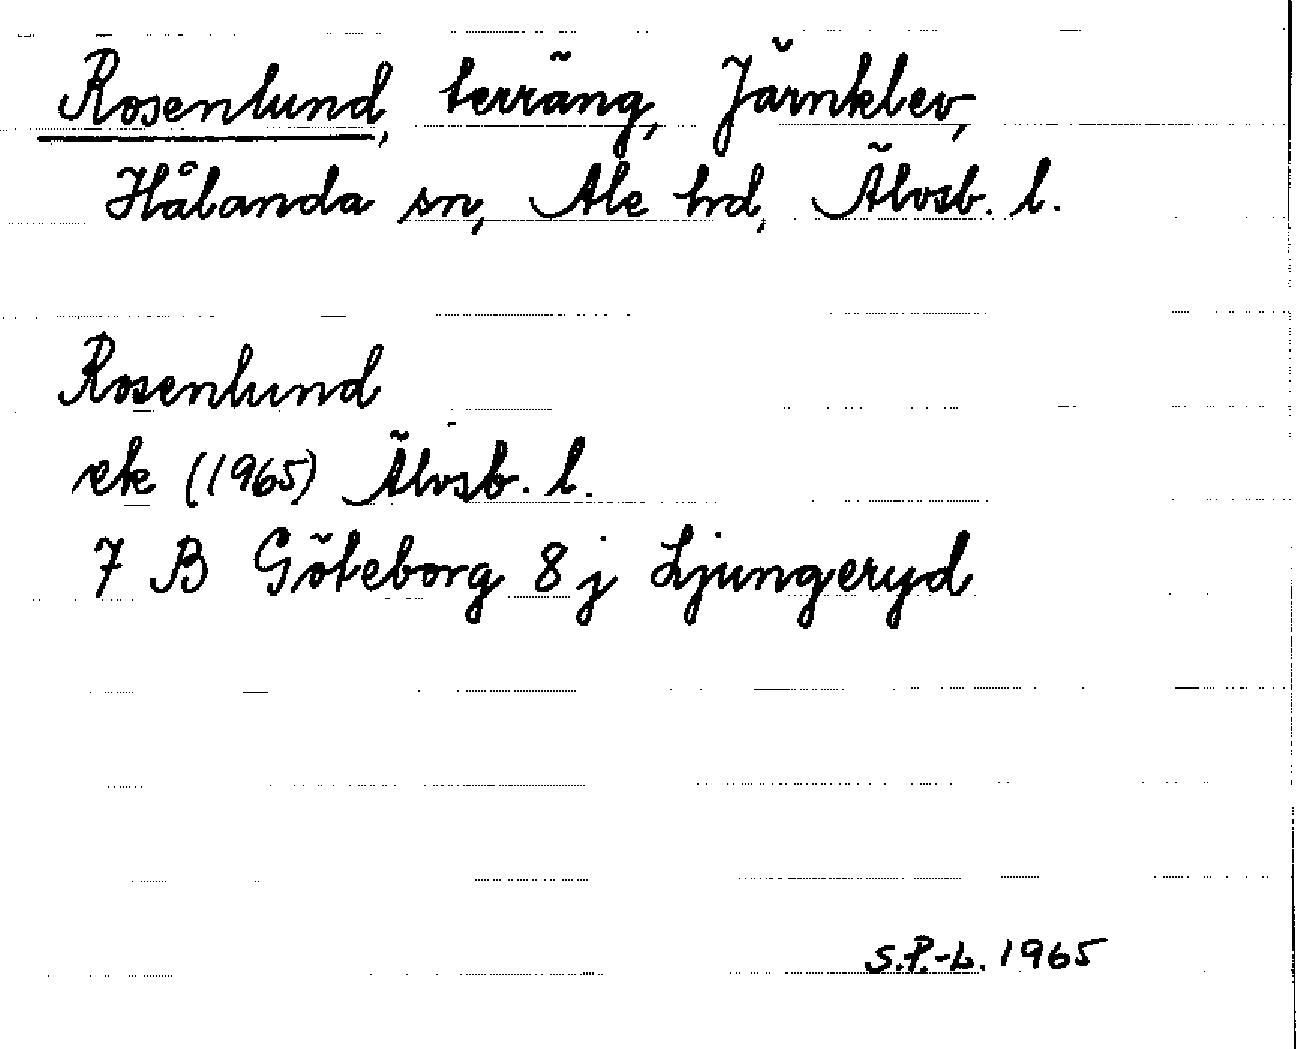 Rosenlund, terräng, Järnklev,
Hålanda sn, Ale hd, Älvsb. l.
Rosenlund
ek (1965) Älvsb. l.
7 B Göteborg 8 j Ljungeryd
S.P.-L. 1965